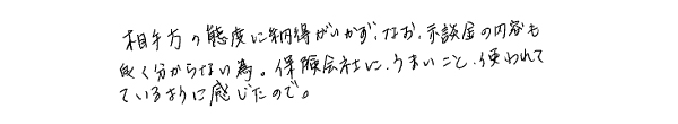 相手方の態度に納得がいかず、なお、示談金の内容も
良く分からない為。保険会社に、うまいこと、使われて
ているように感じたので。